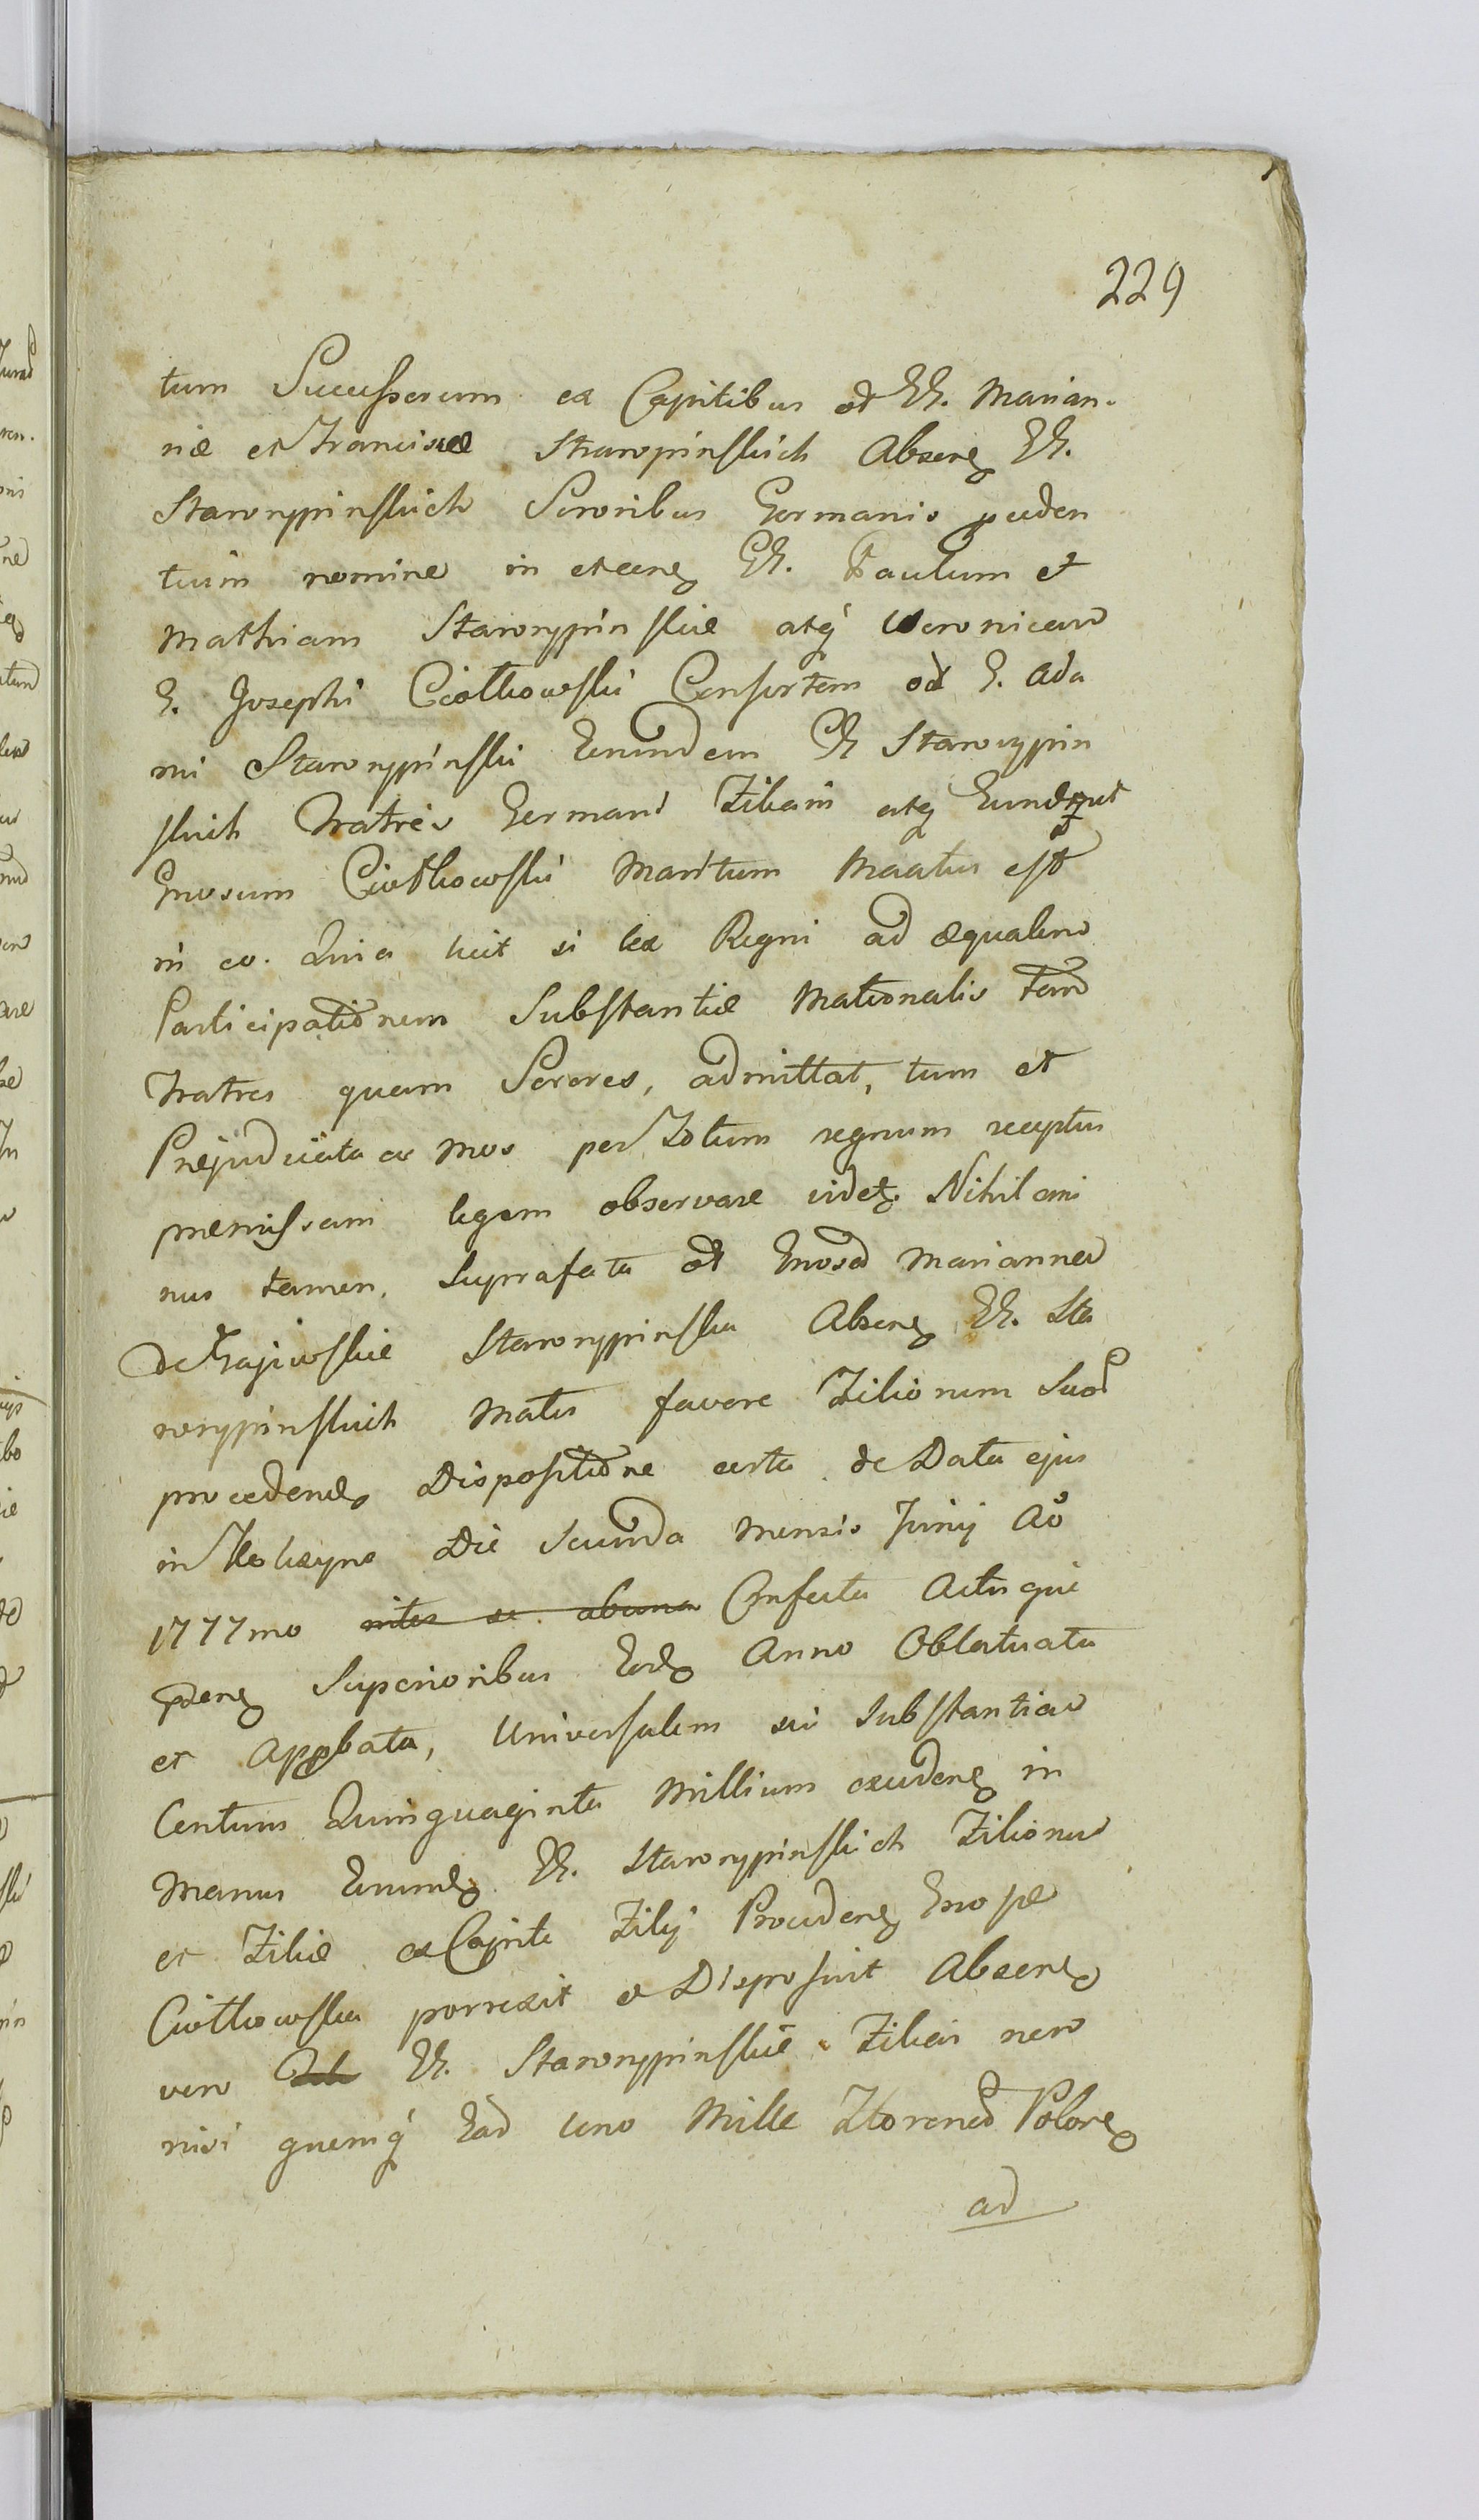 229
tum Successorum ex Capitibus od GG. Marian-
næ et Franciscæ Staropinskich Absen GG.
Starorypinskich Sororibus Germanis peden
tium nomine in et GG. Paulum et
Mathiam Starorypinskie atq Weronicam
G. Josephi Ciołkowski Consortem od G. Ada
mi Starorypinski Eorundem GG Starorypin
skich Fratris Germani Filiam atq
Gnosum Ciołkowski Maritum Maatus est
in eo. Quia licit si lex Regni ad æqualem
Participationem Substantiæ Maternalis tam
Fratres quam Sorores, admittat, tum et
Præjudicata ac mos per Totum regnum receptus
præmissam legem observare videt. Nihilomi
nus tamen, suprafata od Gnosa Marianna
de Gajewskie Starorypinska Absen GG. Sta
rorypinskich Mater favore Filiorum Suor
procedend Dispositione certa de Data ejus
in Die Secunda Mensis Junij Ao
1777mo Confecta Actisque
pden Superioribus Eod Anno Oblatuata
et Appbata, Universalem sui Substantiam
Centum Quinquaginta Millium exceden in
Manus Eorund GG. Starorypinskich Filiorum
et Filiæ ex Capite Filij Proceden Gnosæ
Ciołkowska porrexit et Disposuit Absen
vero GG. Starorypinskie Filias nero
nisi quemq Ead Uno Mille Florenos Polon
ad